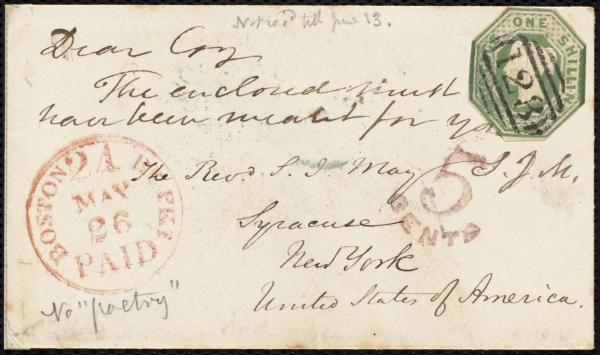 Not rec'd till June 13.
Dear Coz
The enclosed must
have been meant for you
S. J. M.
The Revd S. J. May
Syracuse
New York
United States of America.
No "poetry"
ONE SHILLING
BOSTON BR. PKT
24
MAY
26
PAID
5
CENTS